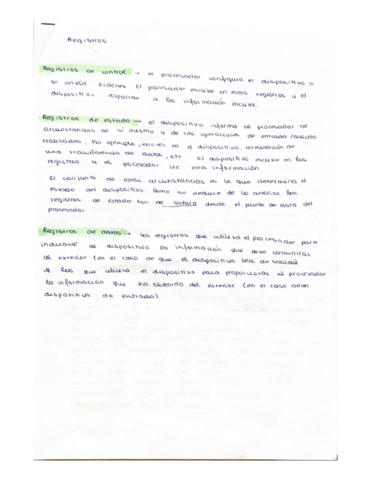 Registros
Registros de control → el procesador configura el dispositivo o
le envía órdenes. El procesador escribe en esos registros y el
dispositivo responde a la información escrita.
Registros de estado → el dispositivo informa al procesador de
circunstancias de sí mismo y de las operaciones de entrada/salida
realizadas. Por ejemplo, errores en el dispositivo, terminación de
una transferencia de datos, etc. El dispositivo escribe en los
registros y el procesador lee esta información.
El conjunto de estas circunstancias es lo que determina el
estado del dispositivo. Como se deduce de lo anterior los
registros de estado son de lectura desde el punto de vista del
procesador.
Registros de datos → los registros que utiliza el procesador para
indicarle al dispositivo la información que debe comunicar
al exterior (en el caso de que el dispositivo sea de salida)
los que utiliza el dispositivo para proporcionar al procesador
la información que ha obtenido del exterior (en el caso
dispositivo de entrada).